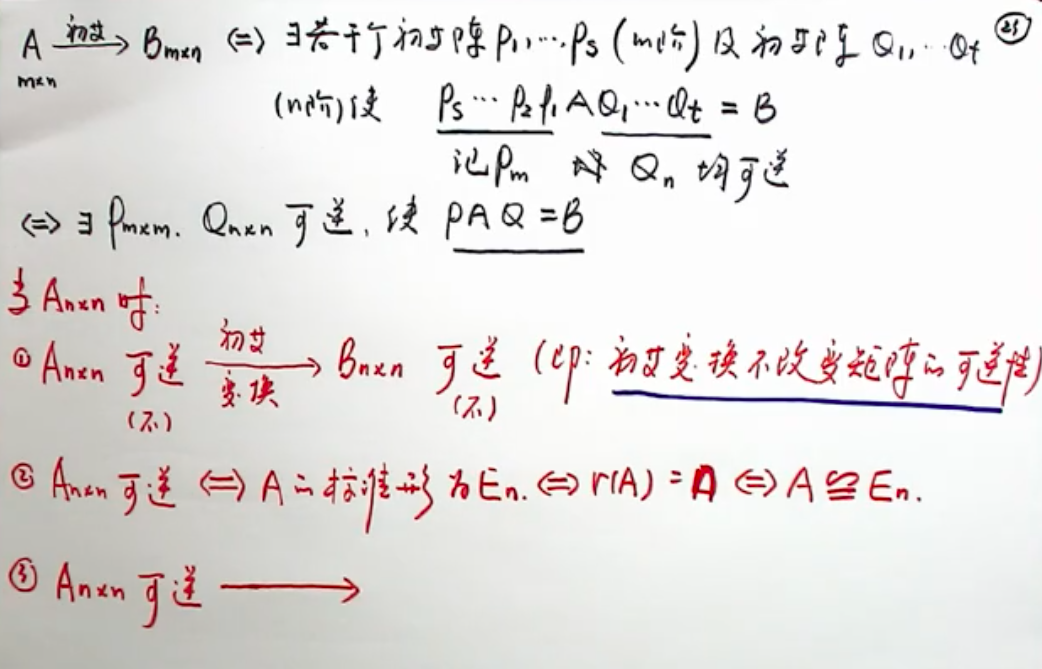 A m×n —初等→ B m×n ⇔ ∃若干个初等阵 P₁, … Pₛ (m阶) 及初等阵 Q₁, … Qt ㉕
(n阶) 使 Pₛ … P₂ P₁ A Q₁ … Qt = B
记 Pm 记 Qn 均可逆
⇔ ∃ Pm×m. Qn×n 可逆, 使 PAQ = B
当 An×n 时:
① An×n 可逆 (不) —初等变换→ Bn×n 可逆 (不) (即: 初等变换不改变矩阵的可逆性)
② An×n 可逆 ⇔ A的标准形为 En. ⇔ r(A) = n ⇔ A ≅ En.
③ An×n 可逆 ⟶